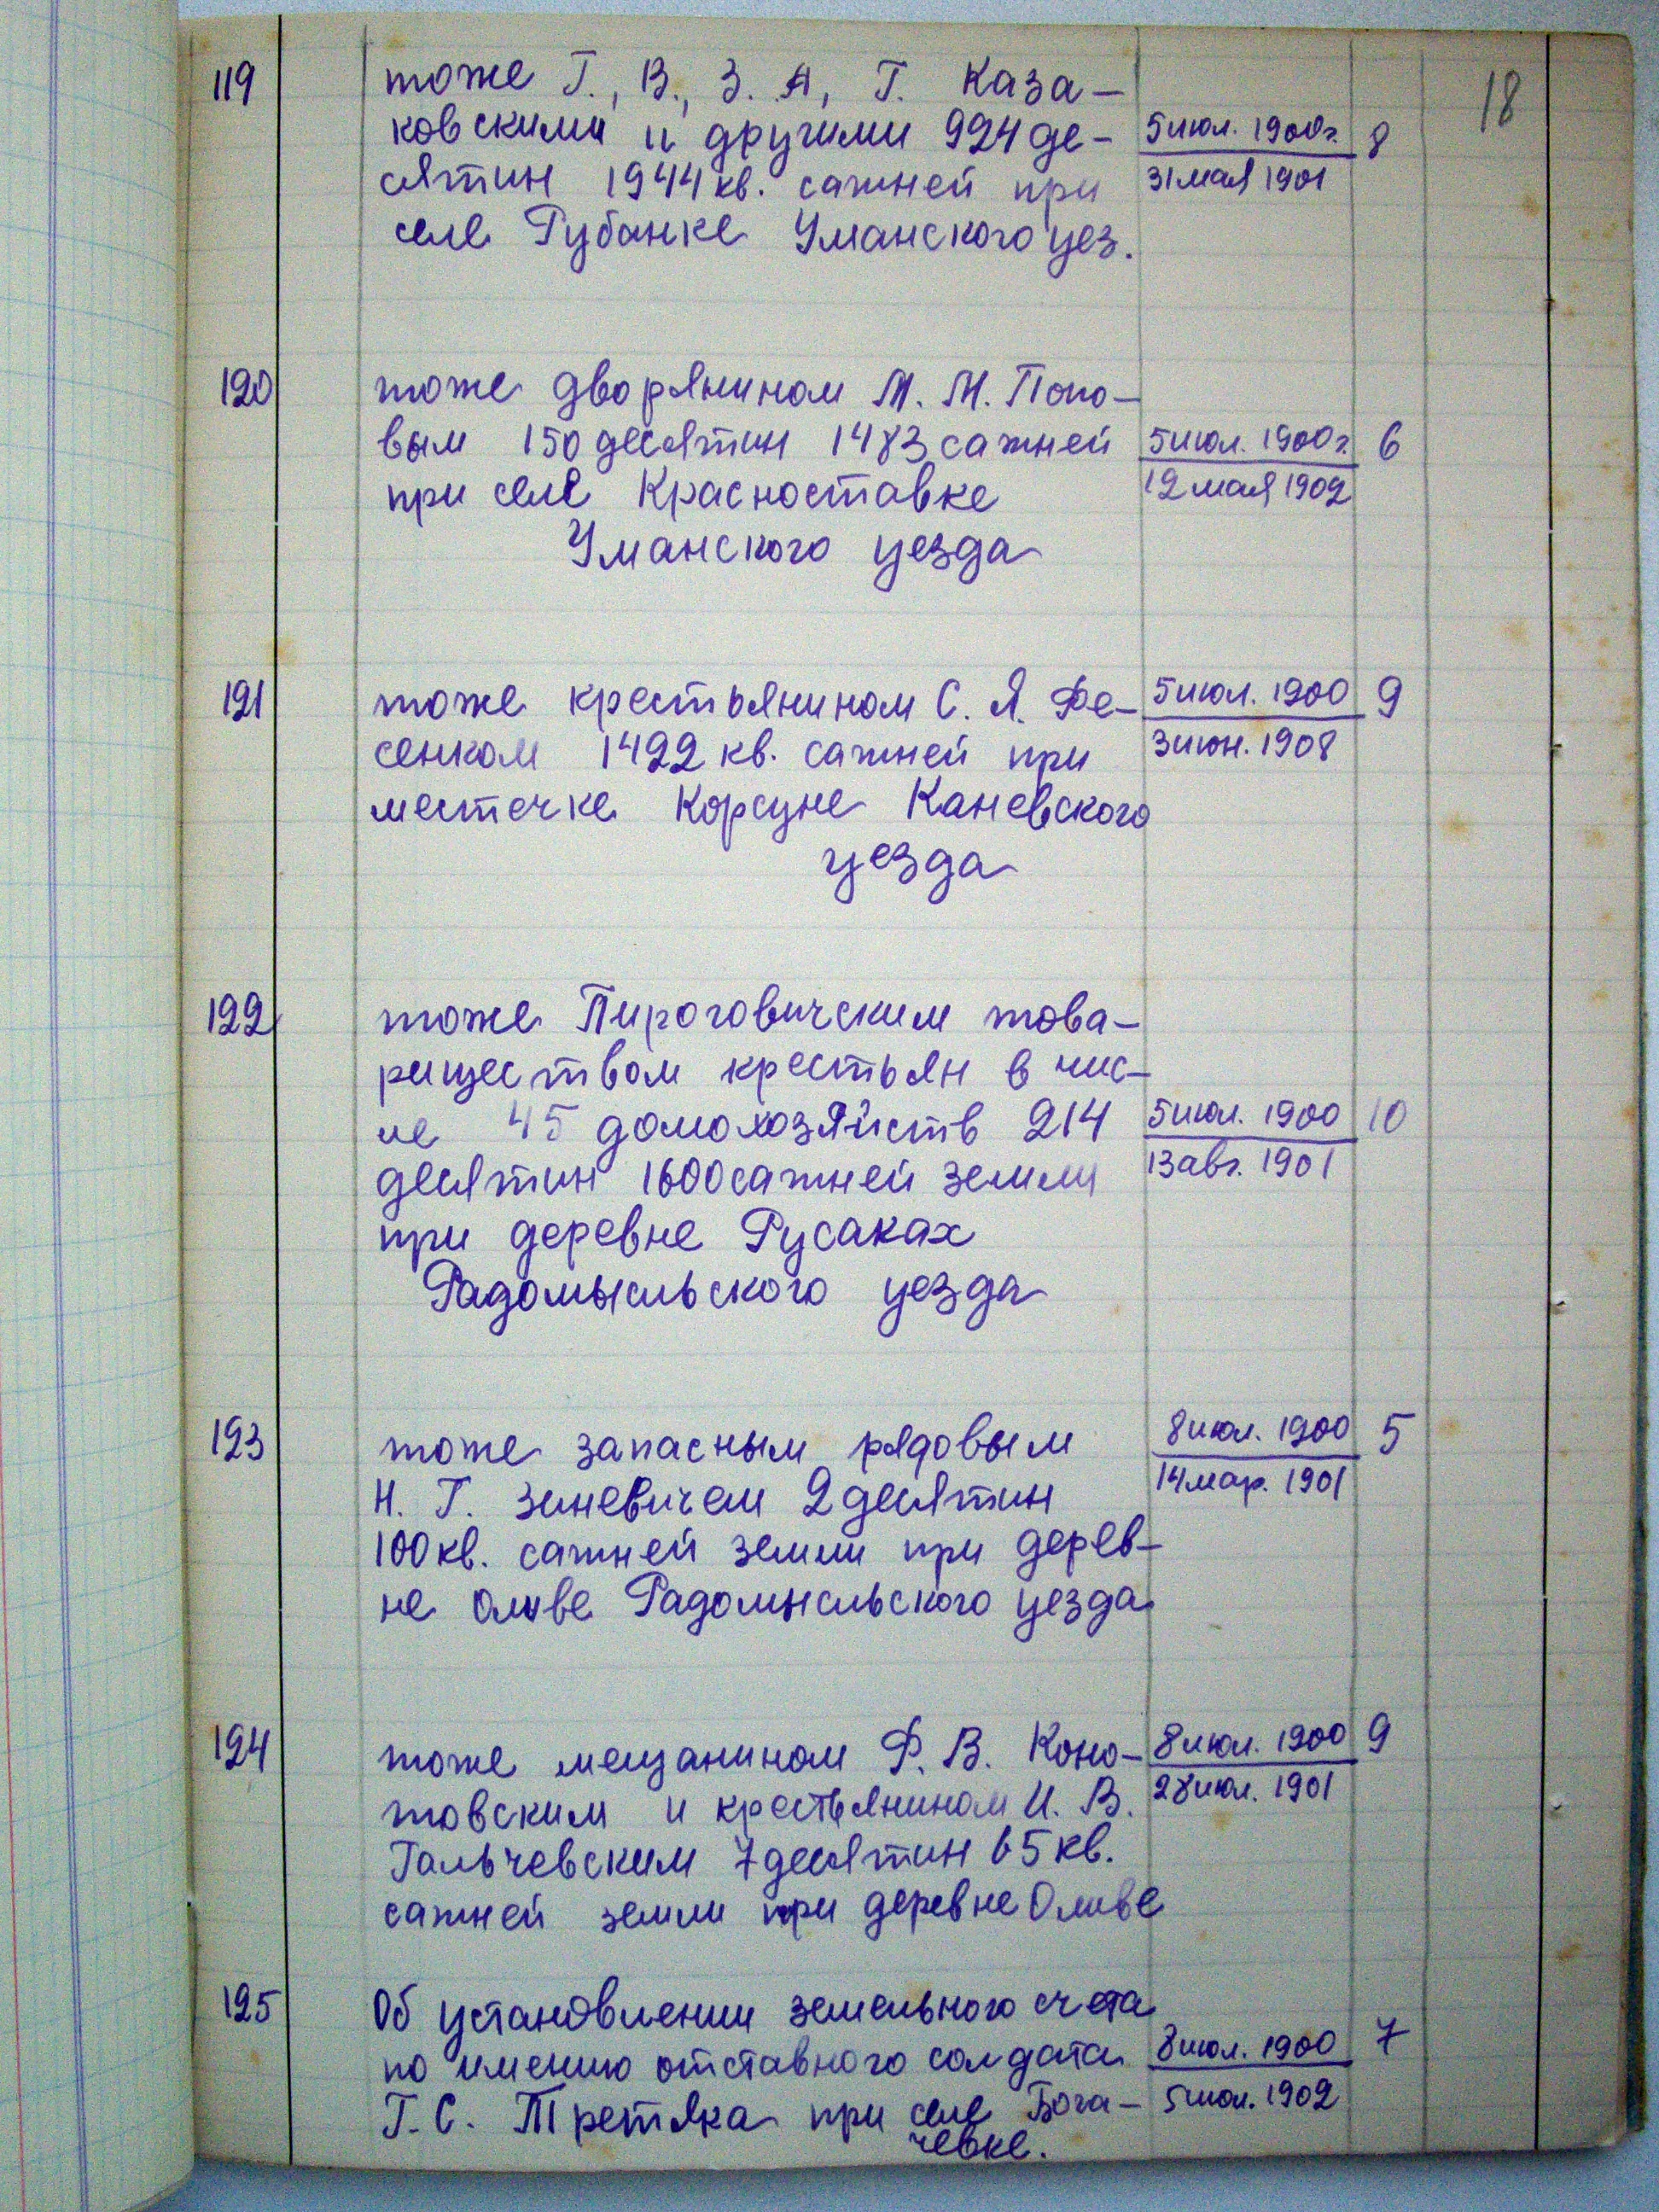 18
119 тоже Г., В., З. А, Г. Каза-
ковскими и другими 924 де- 5 июл. 1900г. 8
сятин 1944 кв. сажней при 31 мая 1901
селе Рубанке Уманского уез.
120 тоже дворянином М. М. Попо-
вым 150 десятин 1483 сажней 5 июл. 1900г. 6
при селе Красноставке 12 мая 1902
Уманского уезда
121 тоже крестьянином С. Я. Фе- 5 июл. 1900 9
сенком 1422 кв. сажней при 3 июн. 1908
местечке Корсуне Каневского
уезда
122 тоже Пироговичским това-
риществом крестьян в чис-
ле 45 домохозяйств 214 5 июл. 1900 10
десятин 1600 сажней земли 13 авг. 1901
при деревне Русаках
Радомысльского уезда
123 тоже запасным рядовым 8 июл. 1900 5
Н. Г. Зиневичем 2 десятин 14 мар. 1901
100 кв. сажней земли при дерев-
не Оливе Радомысльского уезда
124 тоже мещанином Ф. В. Коно- 8 июл. 1900 9
товским и крестьянином И. В. 28 июл. 1901
Гальчевским 7 десятин 65 кв.
сажней земли при деревне Оливе
125 Об установлении земельного счета
по имению отставного солдата 8 июл. 1900 7
Г. С. Третяка при селе Бога- 5 июл. 1902
чевке.